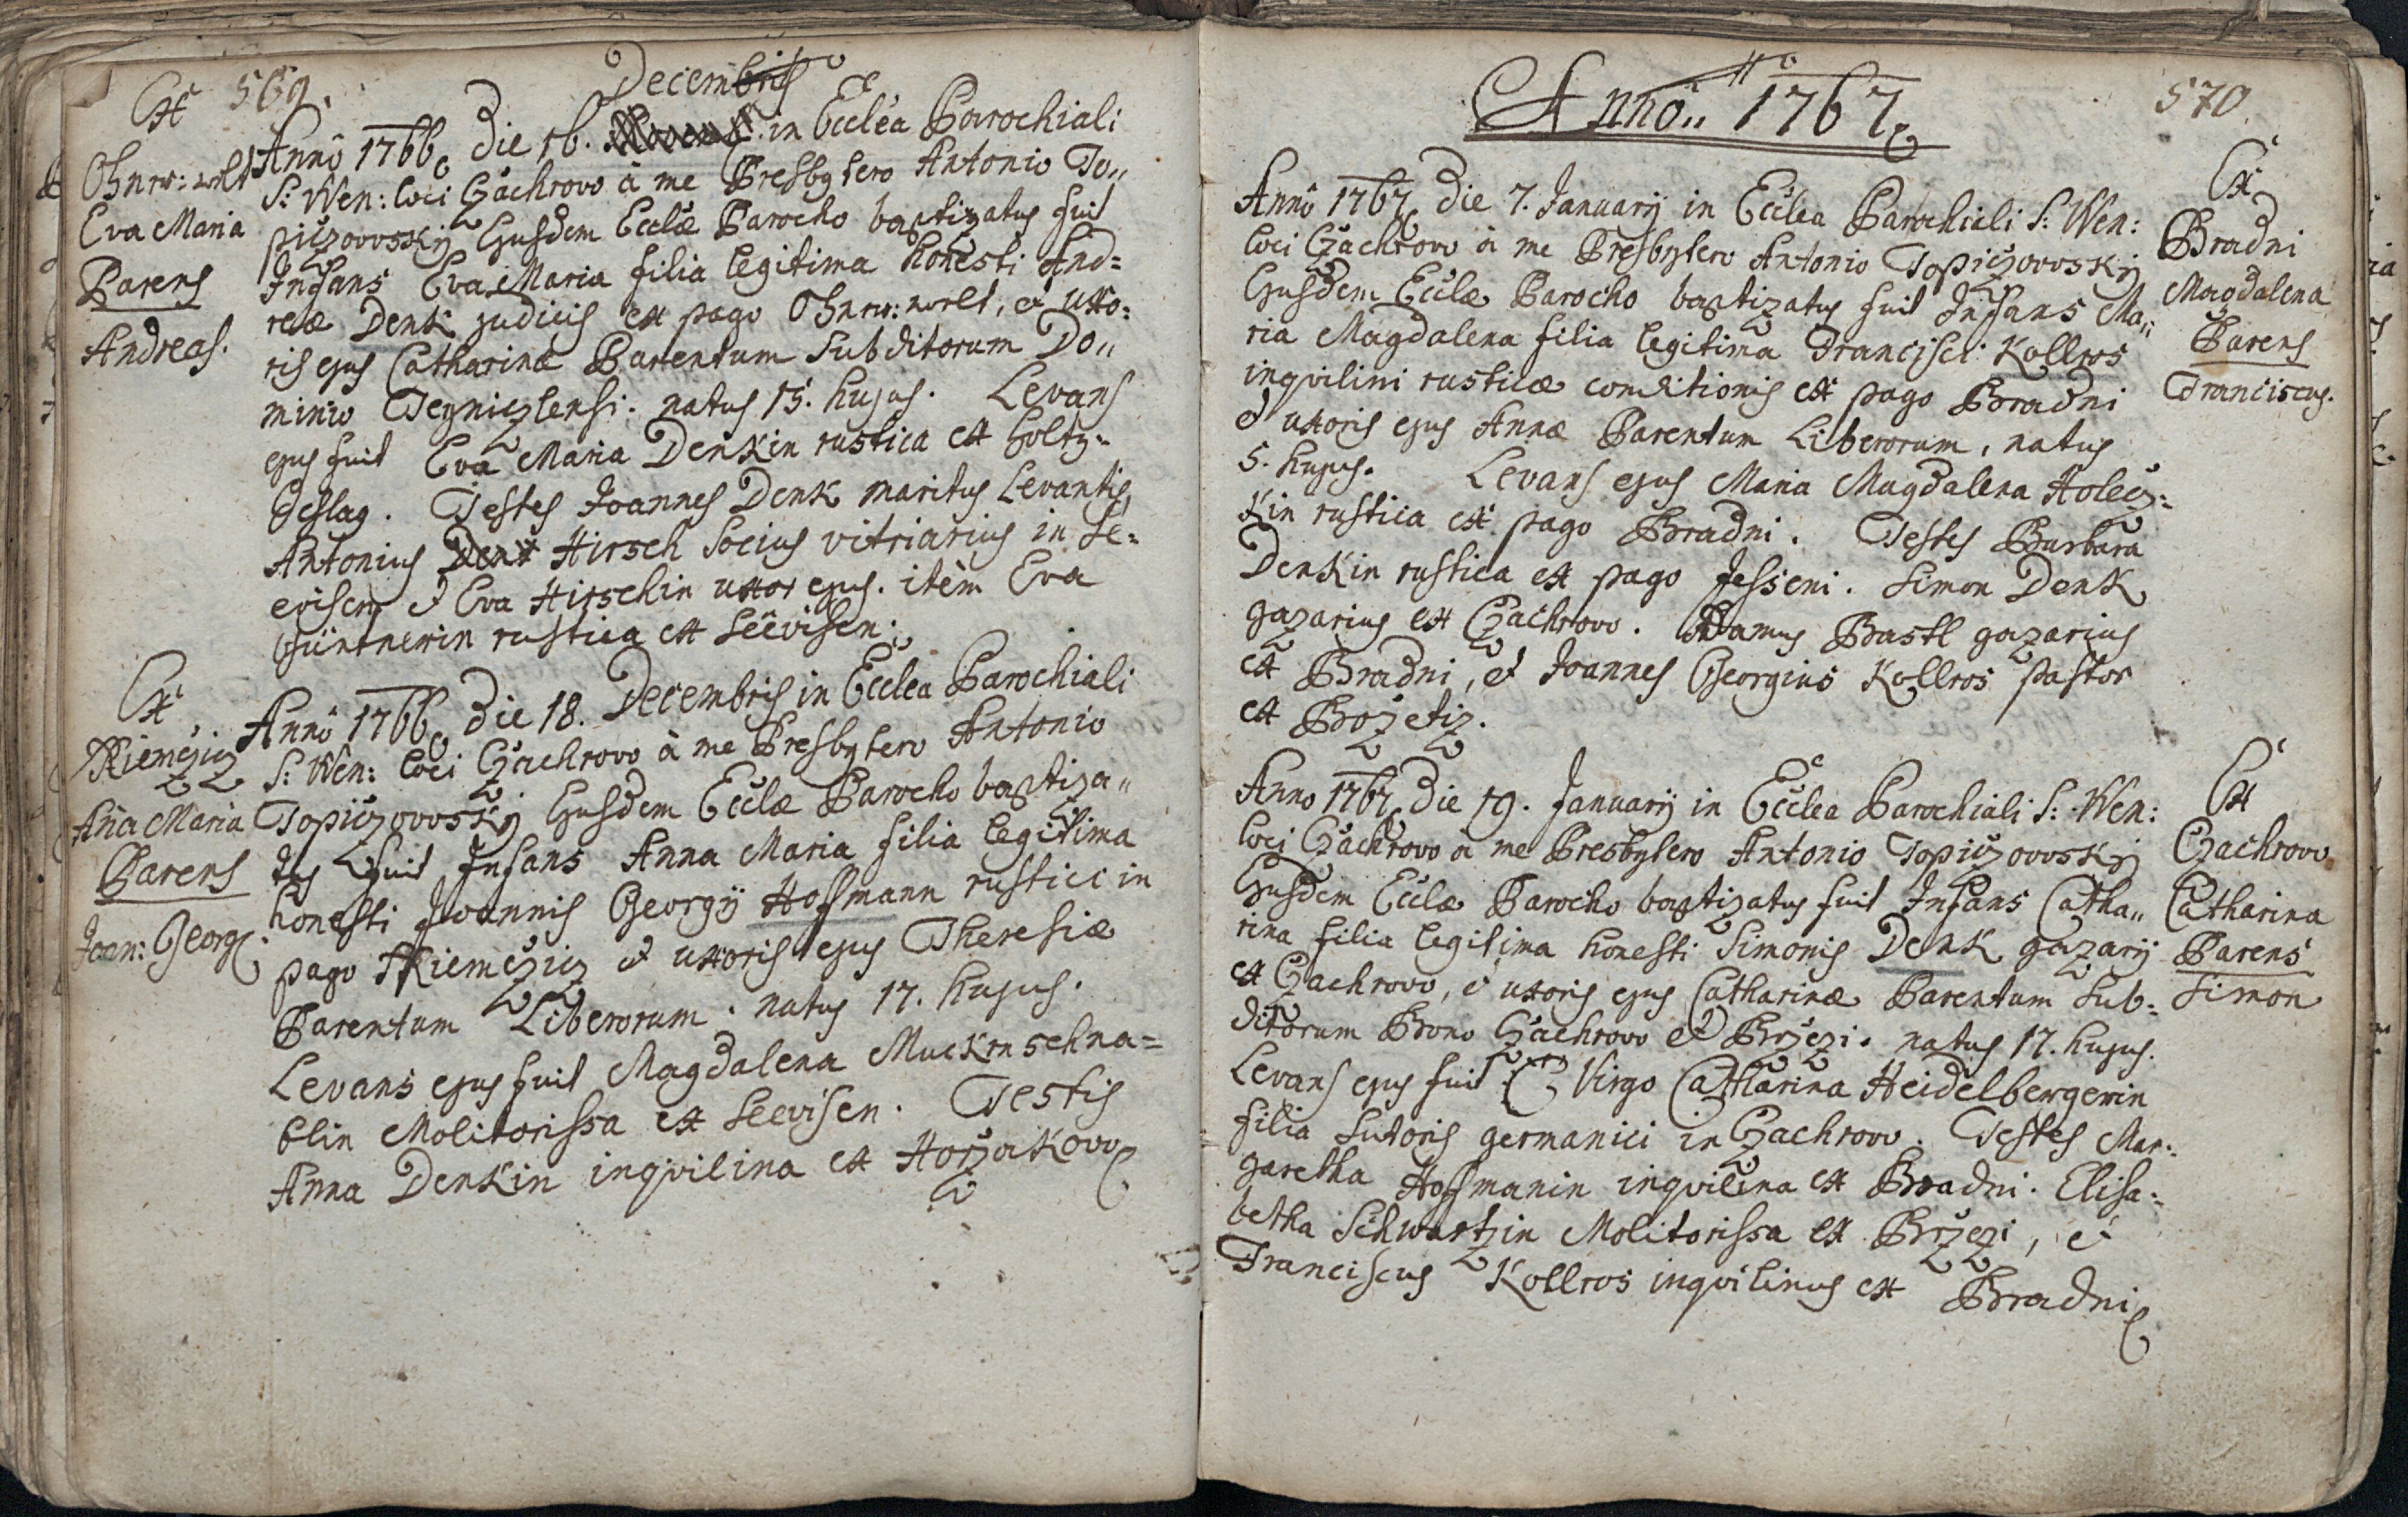 569.
Decembris
Ex
Ohnrw: welt
Eva Maria
Parens
Andreas.
Anno 1766 die 16. in Ecclea Parochiali
S: Wen: loci Czachrow à me Presbytero Antonio To„
piczowskij Ejusdem Ecclæ Parocho baptizatus fuit
Infans Eva Maria filia legitima honesti And=
reæ Denk judicis ex pago Ohnrw: welt, et uxo:
ris ejus Catharinæ Parentum Subditorum Do„
minio Teyniczlensi. natus 15. hujus. Levans
ejus fuit Eva Maria Denkin rustica ex Holtz:
schlag. Testes Joannes Denk maritus Levantis,
Antonius Denk Hirsch Socius vitriarius in Se:
evisen et Eva Hirschin uxor ejus. item Eva
rustica ex Seevisen.
Ex
Rzienczicz
Aña Maria
Parens
Joan: Georg.
Anno 1766 die 18. Decembris in Ecclea Parochiali
S: Wen: loci Czachrow à me Presbytero Antonio
Topiczowskij Ejusdem Ecclæ Parocho baptiza„
tus fuit Infans Anna Maria filia legitima
honesti Joannis Georgij Hoffmann rustici in
pago et uxoris ejus Theresiæ
Parentum Liberorum. natus 17. hujus.
Levans ejus fuit Magdalena Mucknschna=
blin Molitorissa ex Seevisen. Testis
Anna Denkin inqvilina ex Horzakow
570.
Anno 1767
Ex
Bradni
Magdalena
Parens
Franciscus.
Anno 1767 die 7. Januarij in Ecclea Parochiali S: Wen:
loci Czachrow à me Presbytero Antonio Topiczowskij
Ejusdem Ecclæ Parocho baptizatus fuit Infans Ma„
ria Magdalena filia legitima Francisci Kollros
inqvilini rusticæ conditionis ex pago Bradni
et uxoris ejus Annæ Parentum Liberorum, natus
5. hujus. Levans ejus Maria Magdalena Holecz:
kin rustica ex pago Bradni. Testes Barbara
Denkin rustica ex pago Jesseni. Simon Denk
gazarius ex Czachrow. Adamus Bastl gazarius
ex Bradni, et Joannes Georgius Kollros pastor
ex Bozetiz.
Ex
Czachrow
Catharina
Parens
Simon
Anno 1767 die 19. Januarij in Ecclea Parochiali S: Wen:
loci Czachrow à me Presbytero Antonio Topiczowskij
Ejusdem Ecclæ Parocho baptizatus fuit Infans Catha„
rina filia legitima honesti Simonis Denk gazarij
ex Czachrow, et uxoris ejus Catharinæ Parentum Sub:
ditorum Bono Czachrow et Brzezi. natus 17. hujus.
Levans ejus fuit Virgo Catharina Heidelbergerin
filia Sutoris germanici in Czachrow. Testes Mar:
garetha Hoffmanin inqvilina ex Bradni. Elisa:
betha Schwartzin Molitorissa ex Brzezi, et
Franciscus Kollros inqvilinus ex Bradni